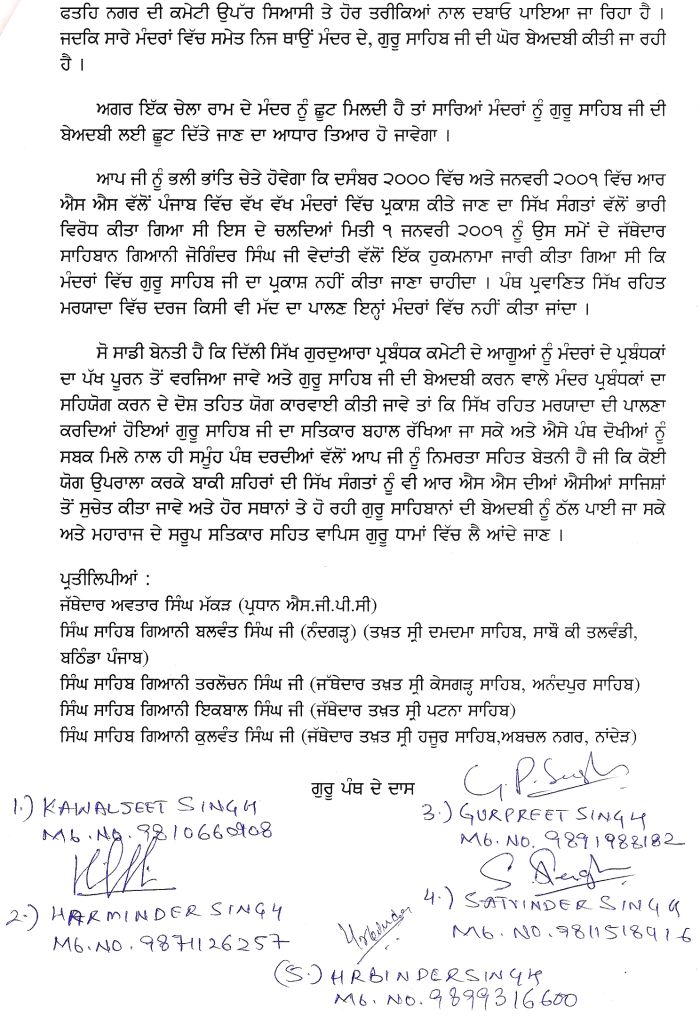 ਫਤਹਿ ਨਗਰ ਦੀ ਕਮੇਟੀ ਉਪੱਰ ਸਿਆਸੀ ਤੇ ਹੋਰ ਤਰੀਕਿਆਂ ਨਾਲ ਦਬਾਓ ਪਾਇਆ ਜਾ ਰਿਹਾ ਹੈ ।
ਜਦਕਿ ਸਾਰੇ ਮੰਦਰਾਂ ਵਿੱਚ ਸਮੇਤ ਨਿਜ ਥਾਉਂ ਮੰਦਰ ਦੇ, ਗੁਰੂ ਸਾਹਿਬ ਜੀ ਦੀ ਘੋਰ ਬੇਅਦਬੀ ਕੀਤੀ ਜਾ ਰਹੀ
ਹੈ ।
ਅਗਰ ਇੱਕ ਚੇਲਾ ਰਾਮ ਦੇ ਮੰਦਰ ਨੂੰ ਛੂਟ ਮਿਲਦੀ ਹੈ ਤਾਂ ਸਾਰਿਆਂ ਮੰਦਰਾਂ ਨੂੰ ਗੁਰੂ ਸਾਹਿਬ ਜੀ ਦੀ
ਬੇਅਦਬੀ ਲਈ ਛੂਟ ਦਿੱਤੇ ਜਾਣ ਦਾ ਆਧਾਰ ਤਿਆਰ ਹੋ ਜਾਵੇਗਾ ।
ਆਪ ਜੀ ਨੂੰ ਭਲੀ ਭਾਂਤਿ ਚੇਤੇ ਹੋਵੇਗਾ ਕਿ ਦਸੰਬਰ ੨੦੦੦ ਵਿੱਚ ਅਤੇ ਜਨਵਰੀ ੨੦੦੧ ਵਿੱਚ ਆਰ
ਐਸ ਐਸ ਵੱਲੋਂ ਪੰਜਾਬ ਵਿੱਚ ਵੱਖ ਵੱਖ ਮੰਦਰਾਂ ਵਿੱਚ ਪ੍ਰਕਾਸ਼ ਕੀਤੇ ਜਾਣ ਦਾ ਸਿੱਖ ਸੰਗਤਾਂ ਵੱਲੋਂ ਭਾਰੀ
ਵਿਰੋਧ ਕੀਤਾ ਗਿਆ ਸੀ ਇਸ ਦੇ ਚਲਦਿਆਂ ਮਿਤੀ ੧ ਜਨਵਰੀ ੨੦੦੧ ਨੂੰ ਉਸ ਸਮੇਂ ਦੇ ਜੱਥੇਦਾਰ
ਸਾਹਿਬਾਨ ਗਿਆਨੀ ਜੋਗਿੰਦਰ ਸਿੰਘ ਜੀ ਵੇਦਾਂਤੀ ਵੱਲੋਂ ਇੱਕ ਹੁਕਮਨਾਮਾ ਜਾਰੀ ਕੀਤਾ ਗਿਆ ਸੀ ਕਿ
ਮੰਦਰਾਂ ਵਿੱਚ ਗੁਰੂ ਸਾਹਿਬ ਜੀ ਦਾ ਪ੍ਰਕਾਸ਼ ਨਹੀਂ ਕੀਤਾ ਜਾਣਾ ਚਾਹੀਦਾ । ਪੰਥ ਪ੍ਰਵਾਣਿਤ ਸਿੱਖ ਰਹਿਤ
ਮਰਯਾਦਾ ਵਿੱਚ ਦਰਜ ਕਿਸੀ ਵੀ ਮੱਦ ਦਾ ਪਾਲਣ ਇਨ੍ਹਾਂ ਮੰਦਰਾਂ ਵਿੱਚ ਨਹੀਂ ਕੀਤਾ ਜਾਂਦਾ ।
ਸੋ ਸਾਡੀ ਬੇਨਤੀ ਹੈ ਕਿ ਦਿੱਲੀ ਸਿੱਖ ਗੁਰਦੁਆਰਾ ਪ੍ਰਬੰਧਕ ਕਮੇਟੀ ਦੇ ਆਗੂਆਂ ਨੂੰ ਮੰਦਰਾਂ ਦੇ ਪ੍ਰਬੰਧਕਾਂ
ਦਾ ਪੱਖ ਪੂਰਨ ਤੋਂ ਵਰਜਿਆ ਜਾਵੇ ਅਤੇ ਗੁਰੂ ਸਾਹਿਬ ਜੀ ਦੀ ਬੇਅਦਬੀ ਕਰਨ ਵਾਲੇ ਮੰਦਰ ਪ੍ਰਬੰਧਕਾਂ ਦਾ
ਸਹਿਯੋਗ ਕਰਨ ਦੇ ਦੋਸ਼ ਤਹਿਤ ਯੋਗ ਕਾਰਵਾਈ ਕੀਤੀ ਜਾਵੇ ਤਾਂ ਕਿ ਸਿੱਖ ਰਹਿਤ ਮਰਯਾਦਾ ਦੀ ਪਾਲਣਾ
ਕਰਦਿਆਂ ਹੋਇਆਂ ਗੁਰੂ ਸਾਹਿਬ ਜੀ ਦਾ ਸਤਿਕਾਰ ਬਹਾਲ ਰੱਖਿਆ ਜਾ ਸਕੇ ਅਤੇ ਐਸੇ ਪੰਥ ਦੋਖੀਆਂ ਨੂੰ
ਸਬਕ ਮਿਲੇ ਨਾਲ ਹੀ ਸਮੂੰਹ ਪੰਥ ਦਰਦੀਆਂ ਵੱਲੋਂ ਆਪ ਜੀ ਨੂੰ ਨਿਮਰਤਾ ਸਹਿਤ ਬੇਤਨੀ ਹੈ ਜੀ ਕਿ ਕੋਈ
ਯੋਗ ਉਪਰਾਲਾ ਕਰਕੇ ਬਾਕੀ ਸ਼ਹਿਰਾਂ ਦੀ ਸਿੱਖ ਸੰਗਤਾਂ ਨੂੰ ਵੀ ਆਰ ਐਸ ਐਸ ਦੀਆਂ ਐਸੀਆਂ ਸਾਜਿਸ਼ਾਂ
ਤੋਂ ਸੁਚੇਤ ਕੀਤਾ ਜਾਵੇ ਅਤੇ ਹੋਰ ਸਥਾਨਾਂ ਤੇ ਹੋ ਰਹੀ ਗੁਰੂ ਸਾਹਿਬਾਨਾਂ ਦੀ ਬੇਅਦਬੀ ਨੂੰ ਠੱਲ ਪਾਈ ਜਾ ਸਕੇ
ਅਤੇ ਮਹਾਰਾਜ ਦੇ ਸਰੂਪ ਸਤਿਕਾਰ ਸਹਿਤ ਵਾਪਿਸ ਗੁਰੂ ਧਾਮਾਂ ਵਿੱਚ ਲੈ ਆਂਦੇ ਜਾਣ ।
ਪ੍ਰਤੀਲਿਪੀਆਂ :
ਜੱਥੇਦਾਰ ਅਵਤਾਰ ਸਿੰਘ ਮੱਕੜ (ਪ੍ਰਧਾਨ ਐਸ.ਜੀ.ਪੀ.ਸੀ)
ਸਿੰਘ ਸਾਹਿਬ ਗਿਆਨੀ ਬਲਵੰਤ ਸਿੰਘ ਜੀ (ਨੰਦਗੜ੍ਹ) (ਤਖ਼ਤ ਸ੍ਰੀ ਦਮਦਮਾ ਸਾਹਿਬ, ਸਾਬੋ ਕੀ ਤਲਵੰਡੀ,
ਬਠਿੰਡਾ ਪੰਜਾਬ)
ਸਿੰਘ ਸਾਹਿਬ ਗਿਆਨੀ ਤਰਲੋਚਨ ਸਿੰਘ ਜੀ (ਜੱਥੇਦਾਰ ਤਖ਼ਤ ਸ੍ਰੀ ਕੇਸਗੜ੍ਹ ਸਾਹਿਬ, ਅਨੰਦਪੁਰ ਸਾਹਿਬ)
ਸਿੰਘ ਸਾਹਿਬ ਗਿਆਨੀ ਇਕਬਾਲ ਸਿੰਘ ਜੀ (ਜੱਥੇਦਾਰ ਤਖ਼ਤ ਸ੍ਰੀ ਪਟਨਾ ਸਾਹਿਬ)
ਸਿੰਘ ਸਾਹਿਬ ਗਿਆਨੀ ਕੁਲਵੰਤ ਸਿੰਘ ਜੀ (ਜੱਥੇਦਾਰ ਤਖ਼ਤ ਸ੍ਰੀ ਹਜੂਰ ਸਾਹਿਬ,ਅਬਚਲ ਨਗਰ, ਨਾਂਦੇੜ)
ਗੁਰੂ ਪੰਥ ਦੇ ਦਾਸ
1.) KAWALJEET SINGH
Mb.No. 9810660908
2.) HARMINDER SINGH
Mb.NO. 9871126257
G.P. Singh
3.) GURPREET SINGH
Mb.NO. 9891988182
S. Singh
4.) SATVINDER SINGH
Mb.NO. 9811518916
(5.) HRBINDERSINGH
Mb.NO. 9899316600